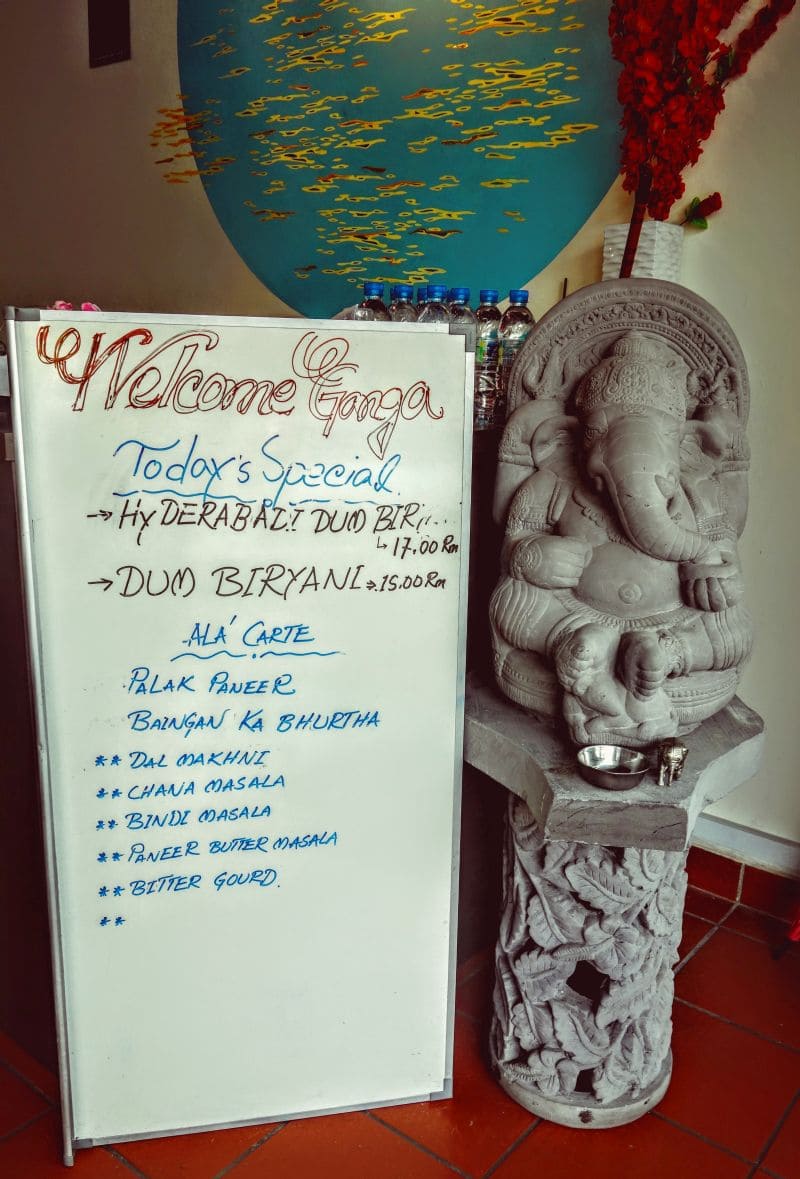 Welcome Ganga
Today's Special
→ HYDERABADI DUM BIR....
↳ 17.00 Rm
→ DUM BIRYANI → 15.00 Rm
ALA' CARTE
PALAK PANEER
BAINGAN KA BHURTHA
** DAL MAKHNI
** CHANA MASALA
** BINDI MASALA
** PANEER BUTTER MASALA
** BITTER GOURD.
**